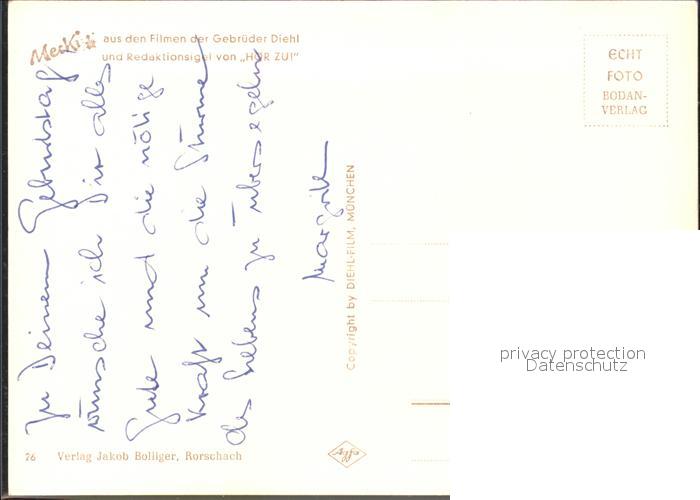 Mecki aus den Filmen der Gebrüder Diehl
und Redaktionsigel von „HÖR ZU!"
ECHT
FOTO
BODAN-
VERLAG
Zu Deinem Geburtstag
wünsche ich Dir alles
Gute und die nötige
Kraft um die Stürme
des Lebens zu übersegeln
Margrith
Copyright by DIEHL-FILM, MÜNCHEN
privacy protection
Datenschutz
26 Verlag Jakob Bolliger, Rorschach
Agfa